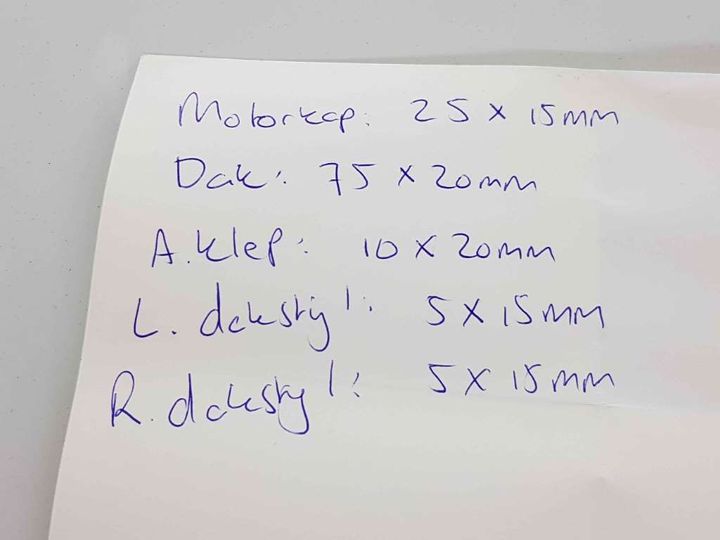 Motorkap: 25 x 15mm
Dak: 75 x 20mm
A.klep: 10 x 20mm
L. dakstijl: 5 x 15mm
R. dakstijl: 5 x 15mm